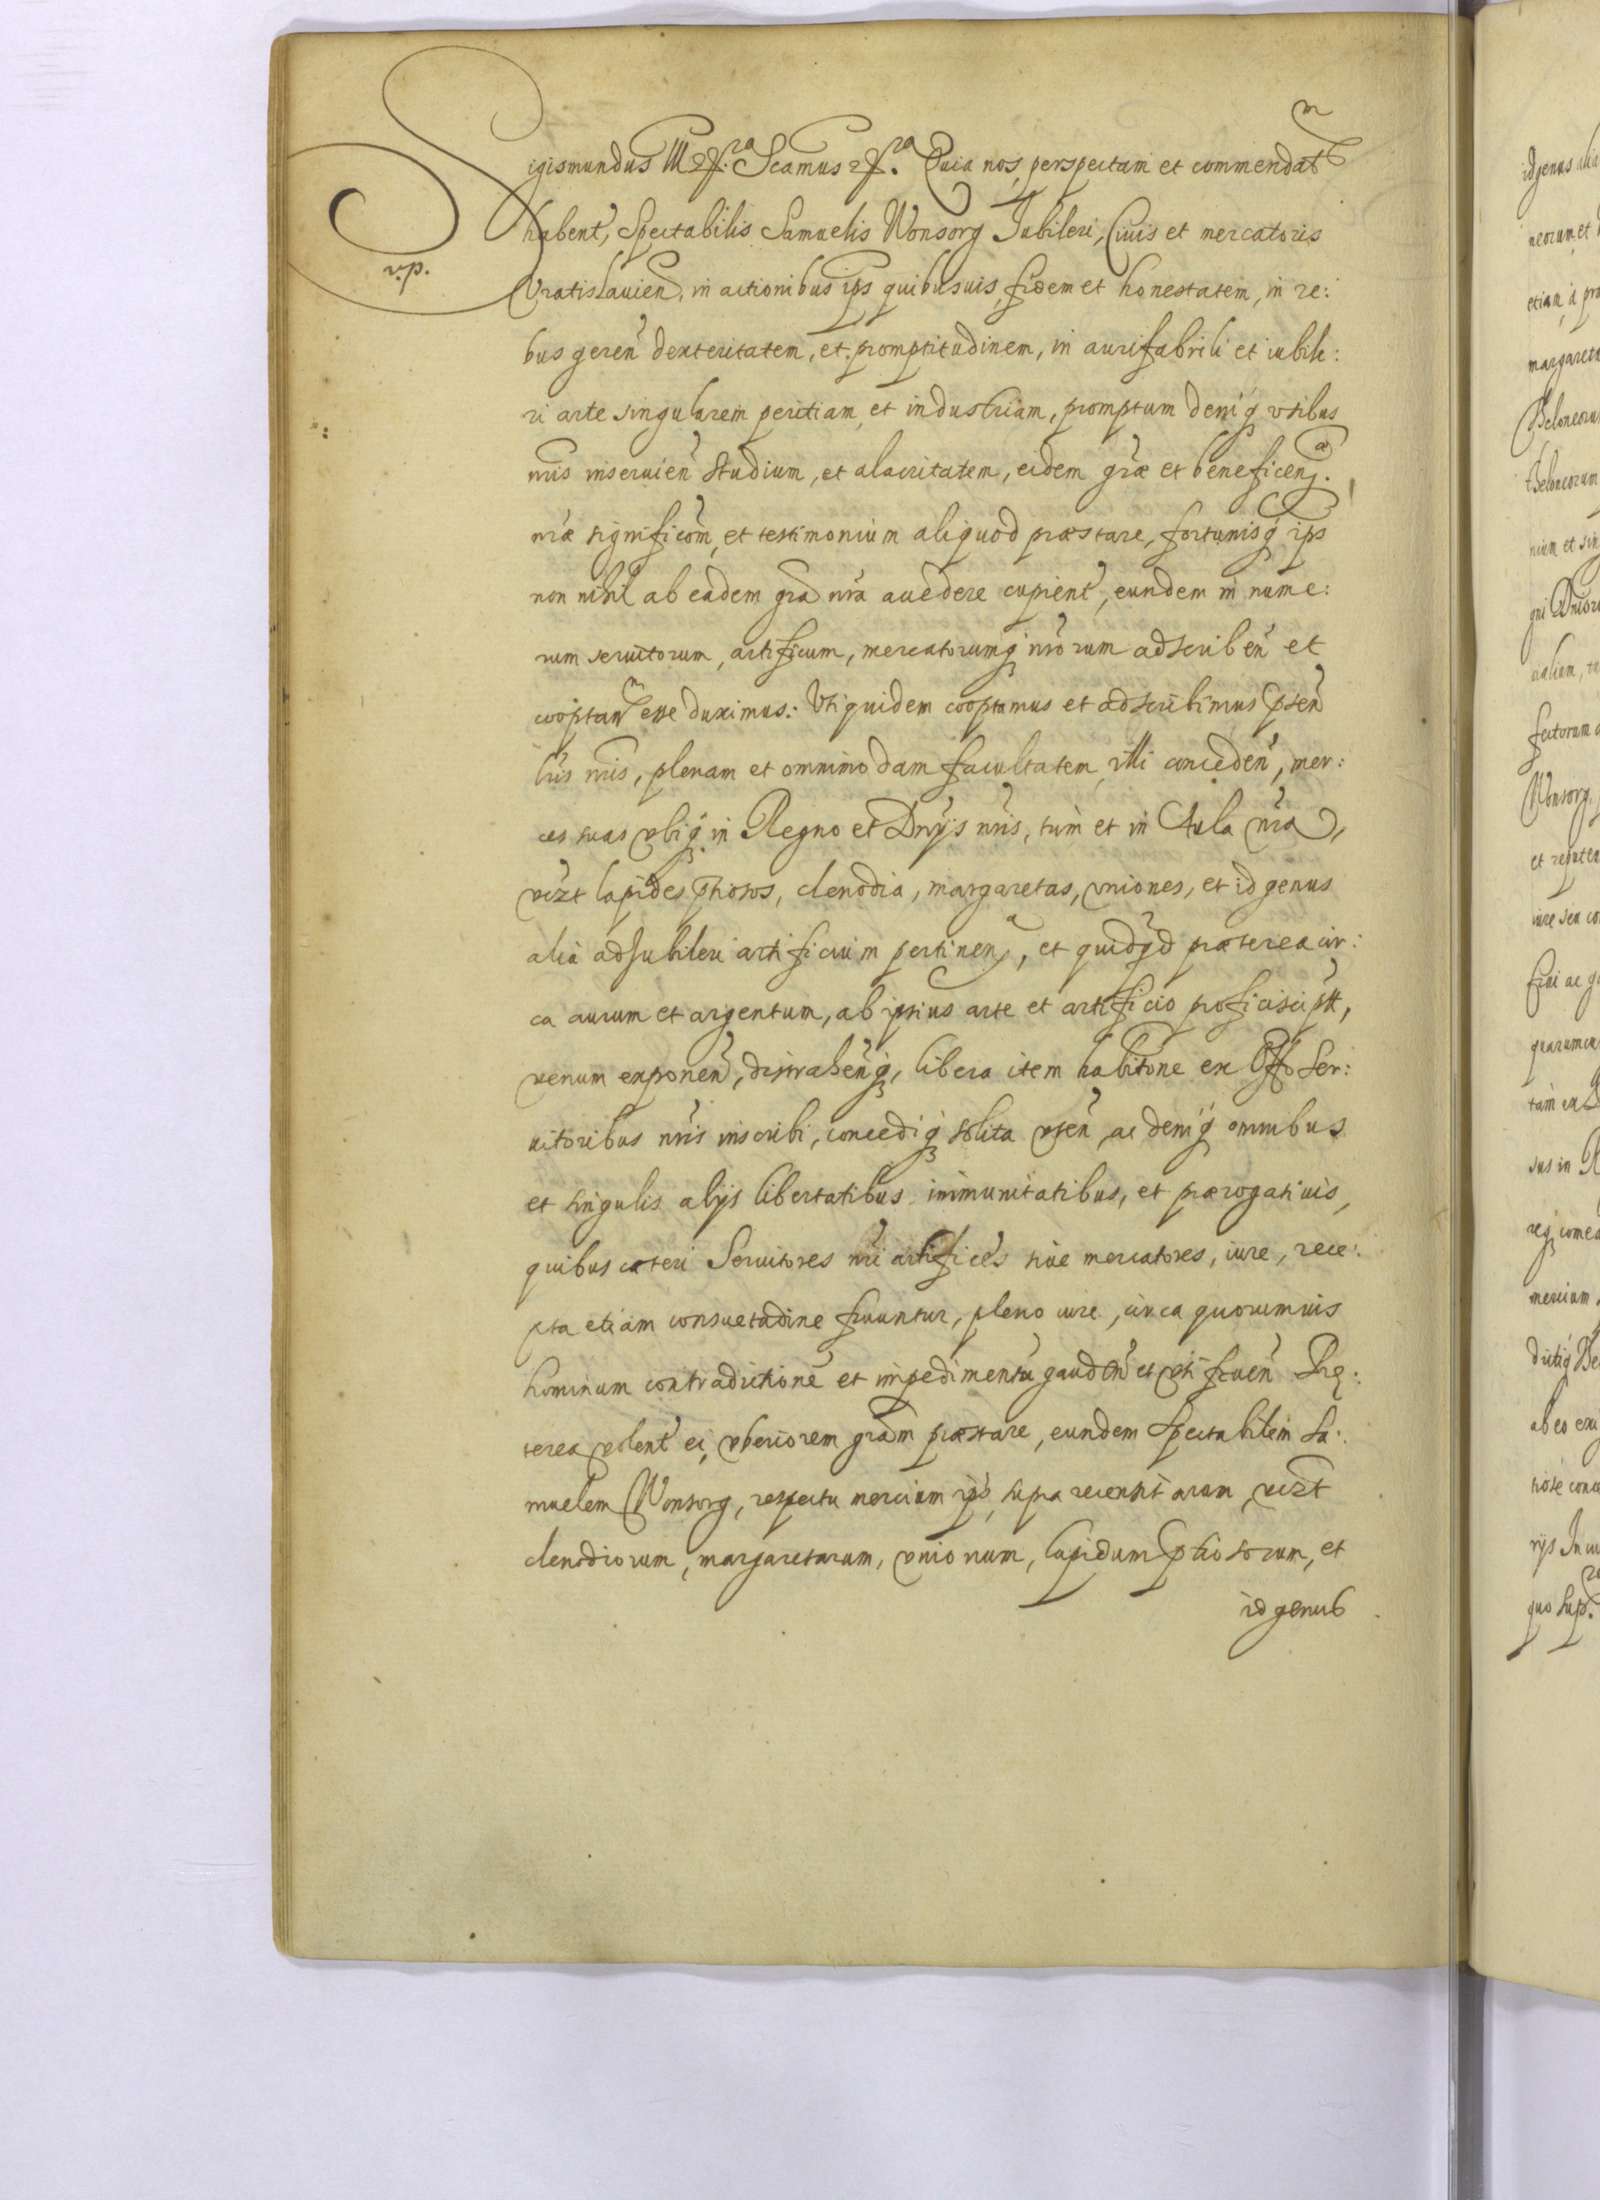 Sigismundus III etc. Scamus etc. Quia nos perspectam et commendat m
habent, Spectabilis Samuelis Wonsorg Jubileri, Ciuis et mercatoris
r.p.
Vratislauien, in actionibus ips quibusuis, fidem et honestatem, in re:
bus geren dexteritatem, et promptitudinem, in aurifabrili et iubile:
ri arte singularem peritiam et industriam, promptum deniq vsibus
nris inseruien studium, et alacritatem, eidem græ et beneficen æ
nræ significom, et testimonium aliquod præstare, fortunisq ips
non nihil ab eadem gra nra accedere cupient, eundem in nume:
rum seruitorum, artificum, mercatorumq nrorum adscriben et
cooptan m esse duximus: Vti quidem cooptamus et adscribimus pten
lris nris, plenam et omnimodam facultatem illi conceden, mer:
ces suas vbiq in Regno et Dnijs nris, tum et in Aula nra,
vizt lapides ptiosos, clenodia, margaretas, vniones, et id genus
alia ad Jubileri artificium pertinen a, et quidqd præterea cir:
ca aurum et argentum, ab ipsius arte et artificio proficisci ptt,
venum exponen, distrahenq, libera item habitone ex Offo Ser:
uitoribus nris inscribi, concediq solita vten, ac deniq omnibus
et singulis alijs libertatibus immunitatibus, et prærogatiuis,
quibus cæteri Seruitores nri artifices siue mercatores, iure, rece:
pta etiam consuetudine fruuntur, pleno iure, circa quorumuis
hominum contradictione et impedimentu gauden et vti fruen Præ:
terea volent ei, vberiorem gram præstare, eundem Spectabilem Sa:
muelem Wonsorg, respectu mercium ips, supra recensitarum, vizt
clenodiorum, margaretarum, vnionum, lapidum ptiosorum, et
id genus